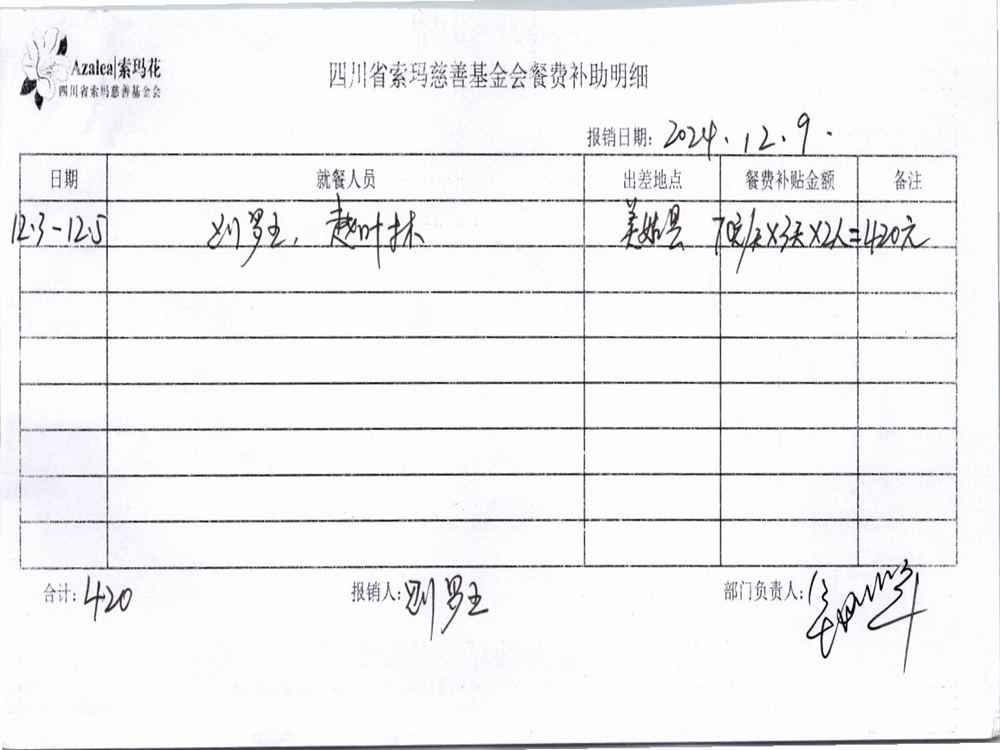 Azalea|索玛花
四川省索玛慈善基金会
四川省索玛慈善基金会餐费补助明细
报销日期: 2024.12.9.
日期 就餐人员 出差地点 餐费补贴金额 备注
12.3-12.5 罗王, 赵叶林 美姑县 70元/天×3天×2人=420元
合计: 420 报销人: 罗王 部门负责人: